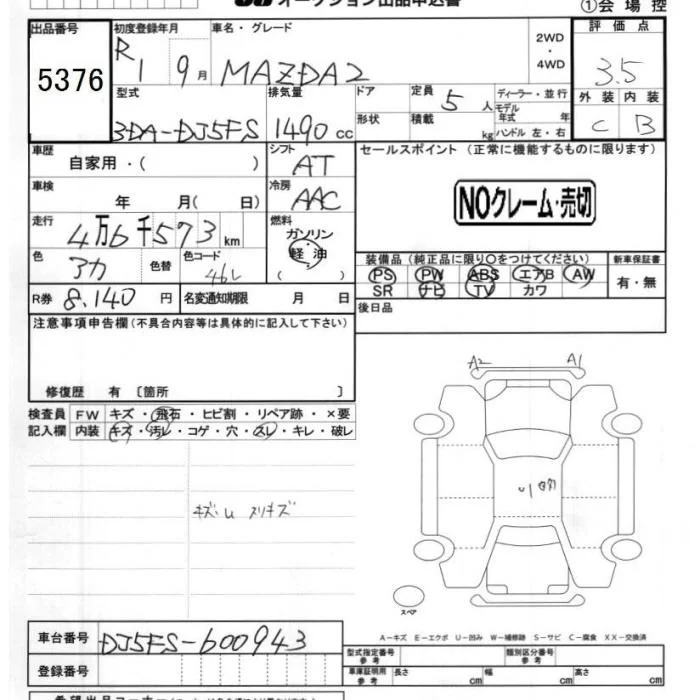 オークション出品申込書
①会場控
出品番号
5376
初度登録年月
R1 9月
車名・グレード
MAZDA2
2WD
・
4WD
評価点
3.5
型式
3DA-DJ5FS
排気量
1490 cc
ドア
形状
定員 5 人
積載 kg
ディーラー・並行
モデル年式 年
ハンドル 左・右
外装 内装
C B
車歴
自家用・( )
シフト
AT
セールスポイント (正常に機能するものに限ります)
NOクレーム・売切
車検
年 月( 日)
冷房
AAC
走行
4万6千573km
燃料
ガソリン
軽・油
( )
色
アカ
色替
色コード
46L
装備品 (純正品に限り○をつけてください)
PS PW ABS エアB AW
SR ナビ TV カワ
新車保証書
有・無
R券 8,140 円
名変通知期限 月 日
後日品
注意事項申告欄(不具合内容等は具体的に記入して下さい)
修復歴 有 〔箇所 〕
検査員
記入欄
FW キズ・飛石・ヒビ割・リペア跡・×要
内装 キズ・汚レ・コゲ・穴・スレ・キレ・破レ
A2 A1
キズU スリキズ
スペア
A-キズ E-エクボ U-凹み W-補修跡 S-サビ C-腐食 XX-交換済
車台番号 DJ5FS-600943
登録番号
型式指定番号
参考
類別区分番号
参考
車庫証明用
参考
長さ cm
幅 cm
高さ cm